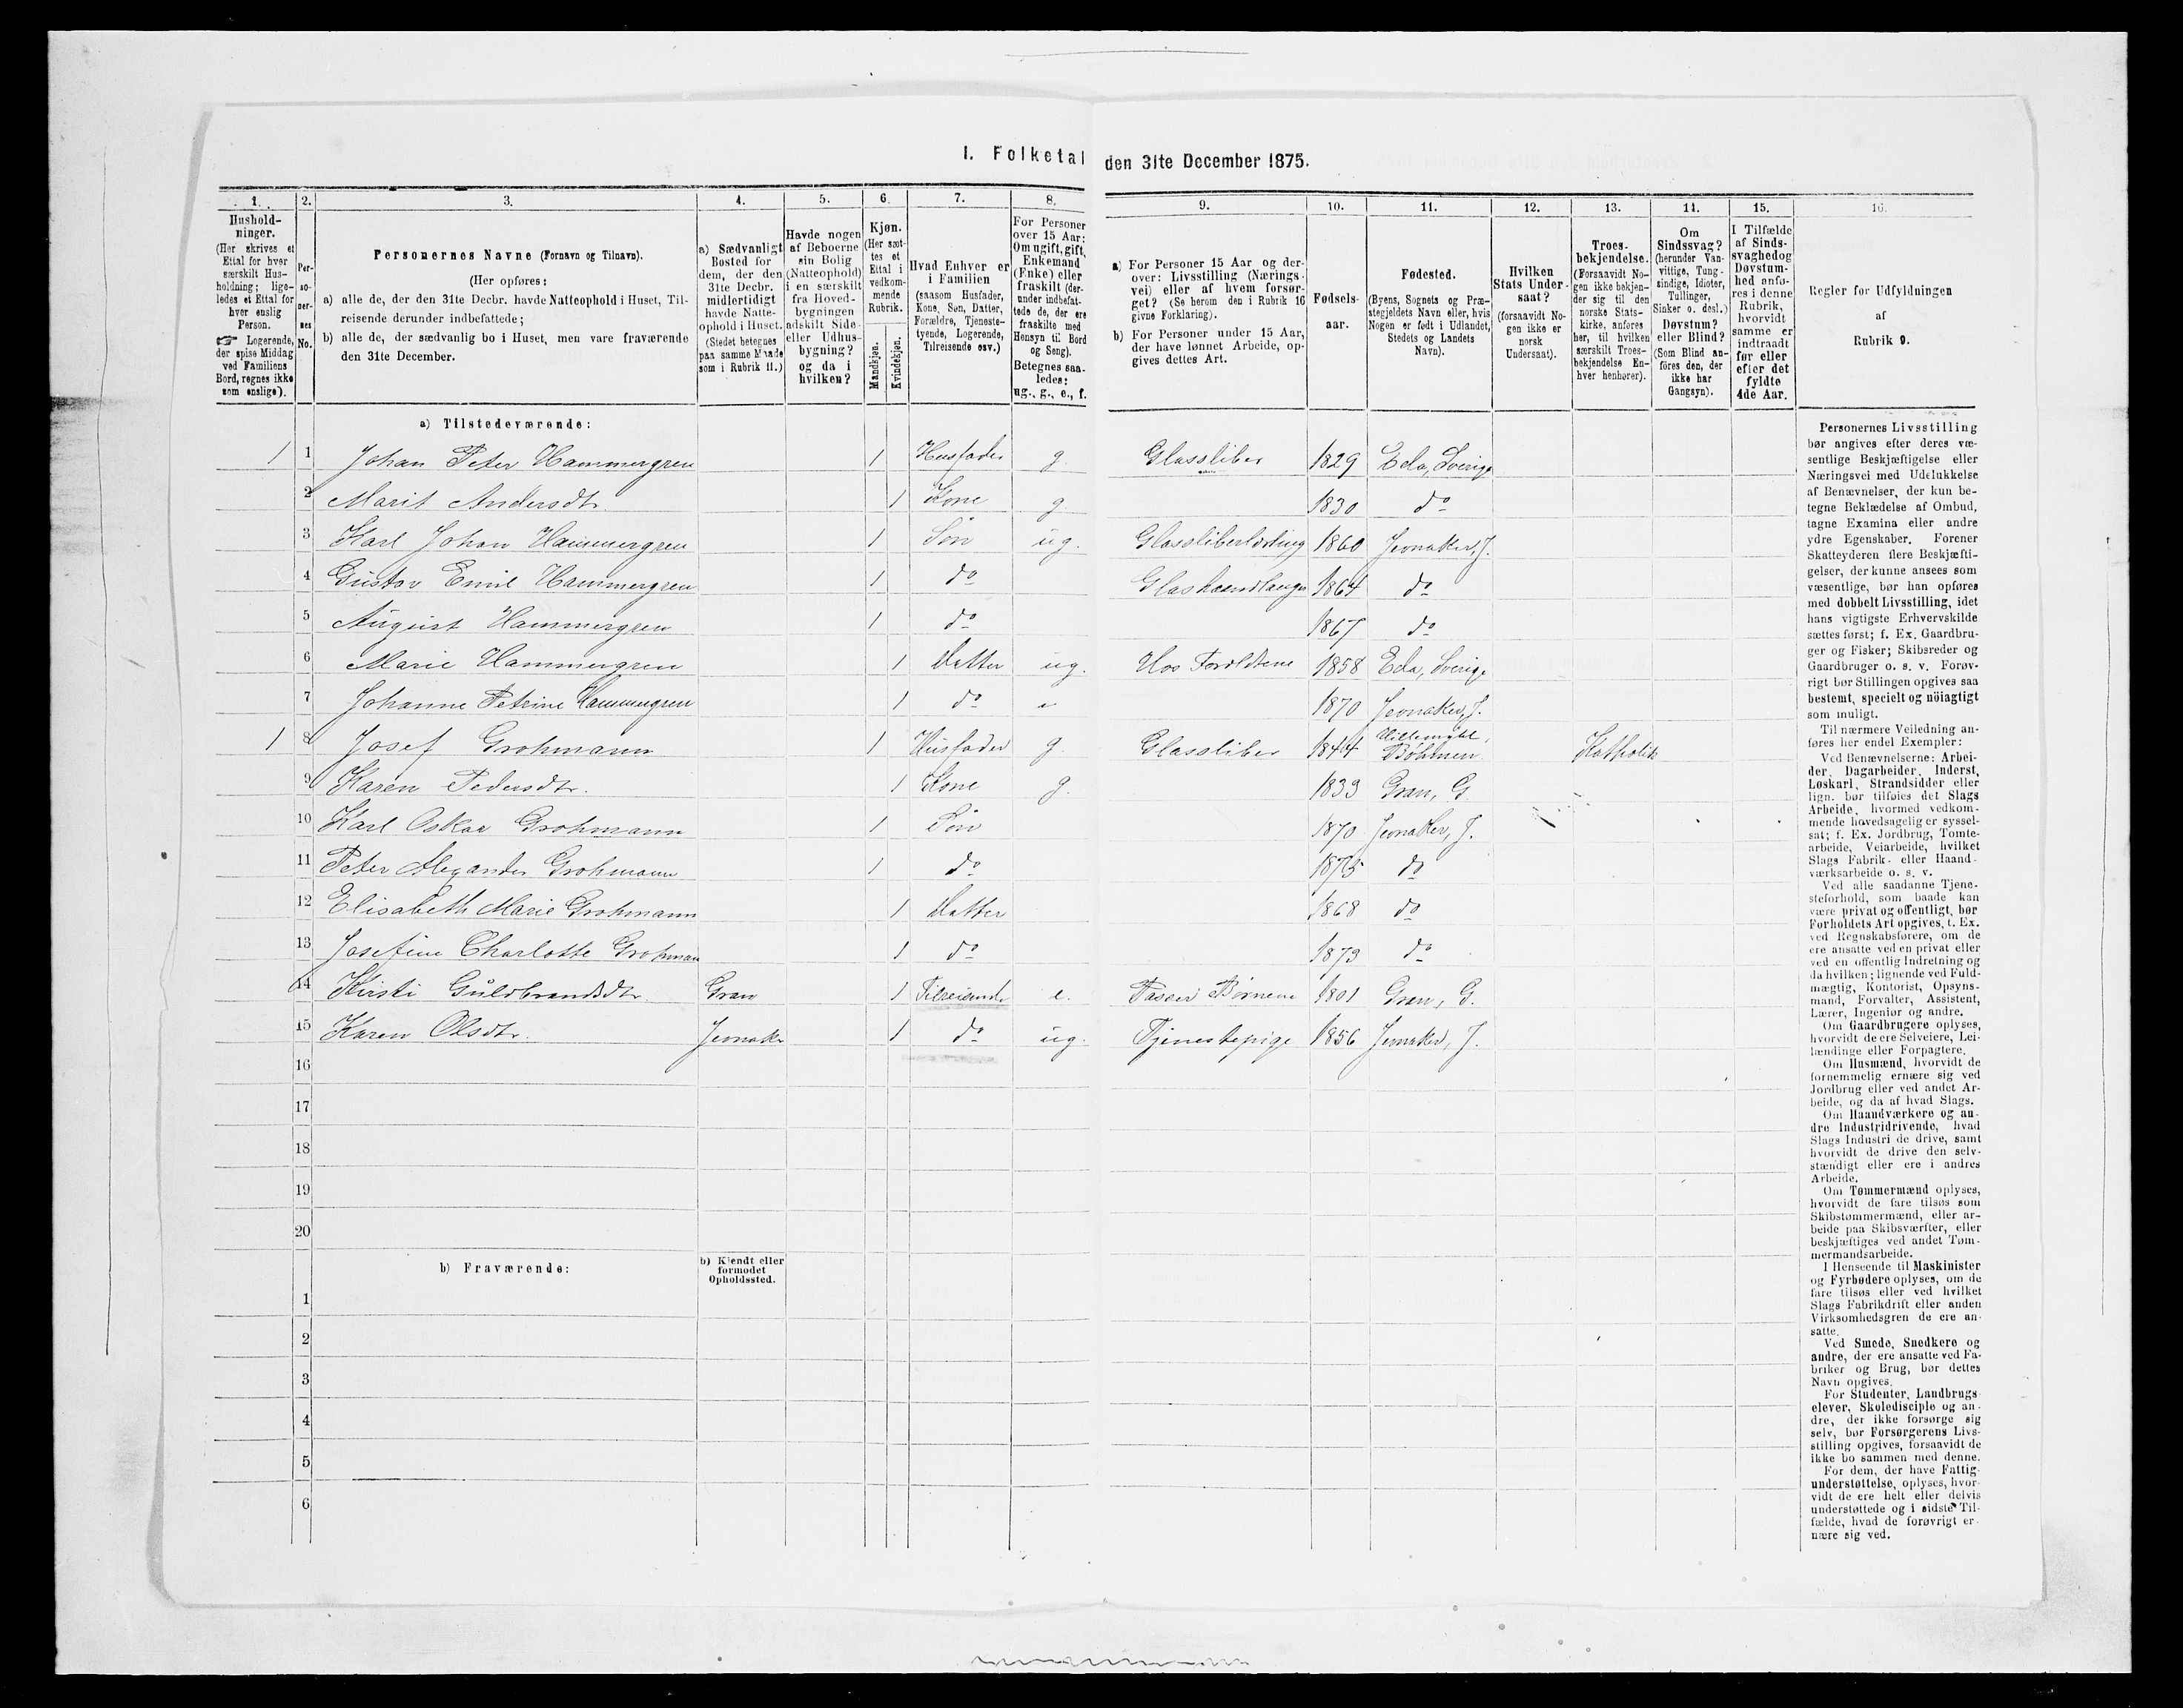 I. Folketal den 31te December 1875.
1. 2. 3. 4. 5. 6. 7. 8. 9. 10. 11. 12. 13. 14. 15. 16.
Hushold-
ninger.
(Her skrives et
Ettal for hver
særskilt Hus-
holdning; lige-
ledes et Ettal for
hver enslig
Person.
☞ Logerende,
der spise Middag
ved Familiens
Bord, regnes ikke
som enslige).
Per-
so-
ner-
nes
No.
Personernes Navne (Fornavn og Tilnavn).
(Her opføres:
a) alle de, der den 31te Decbr. havde Natteophold i Huset, Til-
reisende derunder indbefattede;
b) alle de, der sædvanlig bo i Huset, men vare fraværende
den 31te December.
a) Sædvanligt
Bosted for
dem, der den
31te Decbr.
midlertidigt
havde Natte-
ophold i Huset.
(Stedet betegnes
paa samme Maade
som i Rubrik 11.)
Havde nogen
af Beboerne
sin Bolig
(Natteophold)
i en særskilt
fra Hoved-
bygningen
adskilt Side-
eller Udhus-
bygning?
og da i
hvilken?
Kjøn.
(Her sæt-
tes et
Ettal i
vedkom-
mende
Rubrik.
Mandkjøn.
Kvindekjøn.
Hvad Enhver er
i Familien
(saasom Husfader,
Kone, Søn, Datter,
Forældre, Tjeneste-
tyende, Logerende,
Tilreisende osv.)
For Personer
over 15 Aar:
Om ugift, gift,
Enkemand
(Enke) eller
fraskilt (der-
under indbefat-
tede de, der ere
fraskilte med
Hensyn til Bord
og Seng).
Betegnes saa-
ledes:
ug., g., e., f.
a) For Personer 15 Aar og der-
over: Livsstilling (Nærings-
vei) eller af hvem forsør-
get? (Se herom den i Rubrik 16
givne Forklaring).
b) For Personer under 15 Aar,
der have lønnet Arbeide, op-
gives dettes Art.
Fødsels-
aar.
Fødested.
(Byens, Sognets og Præ-
stegjeldets Navn eller, hvis
Nogen er født i Udlandet,
Stedets og Landets
Navn).
Hvilken
Stats Under-
saat?
(forsaavidt No-
gen ikke er
norsk
Undersaat).
Troes-
bekjendelse.
(Forsaavidt No-
gen ikke bekjen-
der sig til den
norske Stats-
kirke, anføres
her, til hvilken
særskilt Troes-
bekjendelse En-
hver henhører).
Om
Sindssvag?
(herunder Van-
vittige, Tung-
sindige, Idioter,
Tullinger,
Sinker o. desl.)
Døvstum?
eller Blind?
(Som Blind an-
føres den, der
ikke har
Gangsyn).
I Tilfælde
af Sinds-
svaghed og
Døvstum-
hed anfø-
res i denne
Rubrik,
hvorvidt
samme er
indtraadt
før eller
efter det
fyldte
4de Aar.
Regler for Udfyldningen
af
Rubrik 9.
a) Tilstedeværende:
1 1 Johan Peter Hammergren 1 Husfader g. Glassliber 1829 Eda, Sverige
2 Marit Andersdtr. 1 Kone g. 1830 do
3 Karl Johan Hammergren 1 Søn ug. Glassliberlærling 1860 Jevnaker, J.
4 Gustav Emil Hammergren 1 do Glashaandlanger 1864 do
5 August Hammergren 1 do 1867 do
6 Marie Hammergren 1 Datter ug. Hos Forældrene 1858 Eda, Sverige
7 Johanne Petrine Hammergren 1 do 1870 Jevnaker, J.
1 8 Josef Grohmann 1 Husfader g. Glassliber 1844 Bøhmen Katholik
9 Karen Pedersdtr. 1 Kone g. 1833 Gran, G.
10 Karl Oskar Grohmann 1 Søn 1870 Jevnaker, J.
11 Peter Alexander Grohmann 1 do 1875 do
12 Elisabeth Marie Grohmann 1 Datter 1868 do
13 Josefine Charlotte Grohmann 1 do 1873 do
14 Kirsti Guldbrandsdtr. Gran 1 Tilreisende e. Passer Børnene 1801 Gran, G.
15 Karen Olsdtr. Jevnaker 1 do ug. Tjenestepige 1856 Jevnaker, J.
16
17
18
19
20
b) Fraværende:
b) Kjendt eller
formodet
Opholdssted.
1
2
3
4
5
6
Personernes Livsstilling
bør angives efter deres væ-
sentlige Beskjæftigelse eller
Næringsvei med Udelukkelse
af Benævnelser, der kun be-
tegne Beklædelse af Ombud,
tagne Examina eller andre
ydre Egenskaber. Forener
Skatteyderen flere Beskjæfti-
gelser, der kunne ansees som
væsentlige, bør han opføres
med dobbelt Livsstilling, idet
hans vigtigste Erhvervskilde
sættes først; f. Ex. Gaardbru-
ger og Fisker; Skibsreder og
Gaardbruger o. s. v. Forøv-
rigt bør Stillingen opgives saa
bestemt, specielt og nøiagtigt
som muligt.
Til nærmere Veiledning an-
føres her endel Exempler:
Ved Benævnelserne: Arbei-
der, Dagarbeider, Inderst,
Løskarl, Strandsidder eller
lign. bør tilføies det Slags
Arbeide, hvormed vedkom-
mende hovedsagelig er syssel-
sat; f. Ex. Jordbrug, Tomte-
arbeide, Veiarbeide, hvilket
Slags Fabrik- eller Haand-
værksarbeide o. s. v.
Ved alle saadanne Tjene-
steforhold, som baade kan
være privat og offentligt, bør
Forholdets Art opgives, t. Ex.
ved Regnskabsførere, om de
ere ansatte ved en privat eller
ved en offentlig Indretning og
da hvilken; lignende ved Fuld-
mægtig, Kontorist, Opsyns-
mand, Forvalter, Assistent,
Lærer, Ingeniør og andre.
Om Gaardbrugere oplyses,
hvorvidt de ere Selveiere, Lei-
lændinge eller Forpagtere.
Om Husmænd, hvorvidt de
fornemmelig ernære sig ved
Jordbrug eller ved andet Ar-
beide, og da af hvad Slags.
Om Haandværkere og an-
dre Industridrivende, hvad
Slags Industri de drive, samt
hvorvidt de drive den selv-
stændigt eller ere i andres
Arbeide.
Om Tømmermænd oplyses,
hvorvidt de fare tilsøs som
Skibstømmermænd, eller ar-
beide paa Skibsværfter, eller
beskjæftiges ved andet Tøm-
mermandsarbeide.
I Henseende til Maskinister
og Fyrbødere oplyses, om de
fare tilsøs eller ved hvilket
Slags Fabrikdrift eller anden
Virksomhedsgren de ere an-
satte.
Ved Smede, Snedkere og
andre, der ere ansatte ved Fa-
briker og Brug, bør dettes
Navn opgives.
For Studenter, Landbrugs-
elever, Skoledisciple og an-
dre, der ikke forsørge sig
selv, bør Forsørgerens Livs-
stilling opgives, forsaavidt de
ikke bo sammen med denne.
For dem, der have Fattig-
understøttelse, oplyses, hvor-
vidt de ere helt eller delvis
understøttede og i sidste Til-
fælde, hvad de forøvrigt er-
nære sig ved.